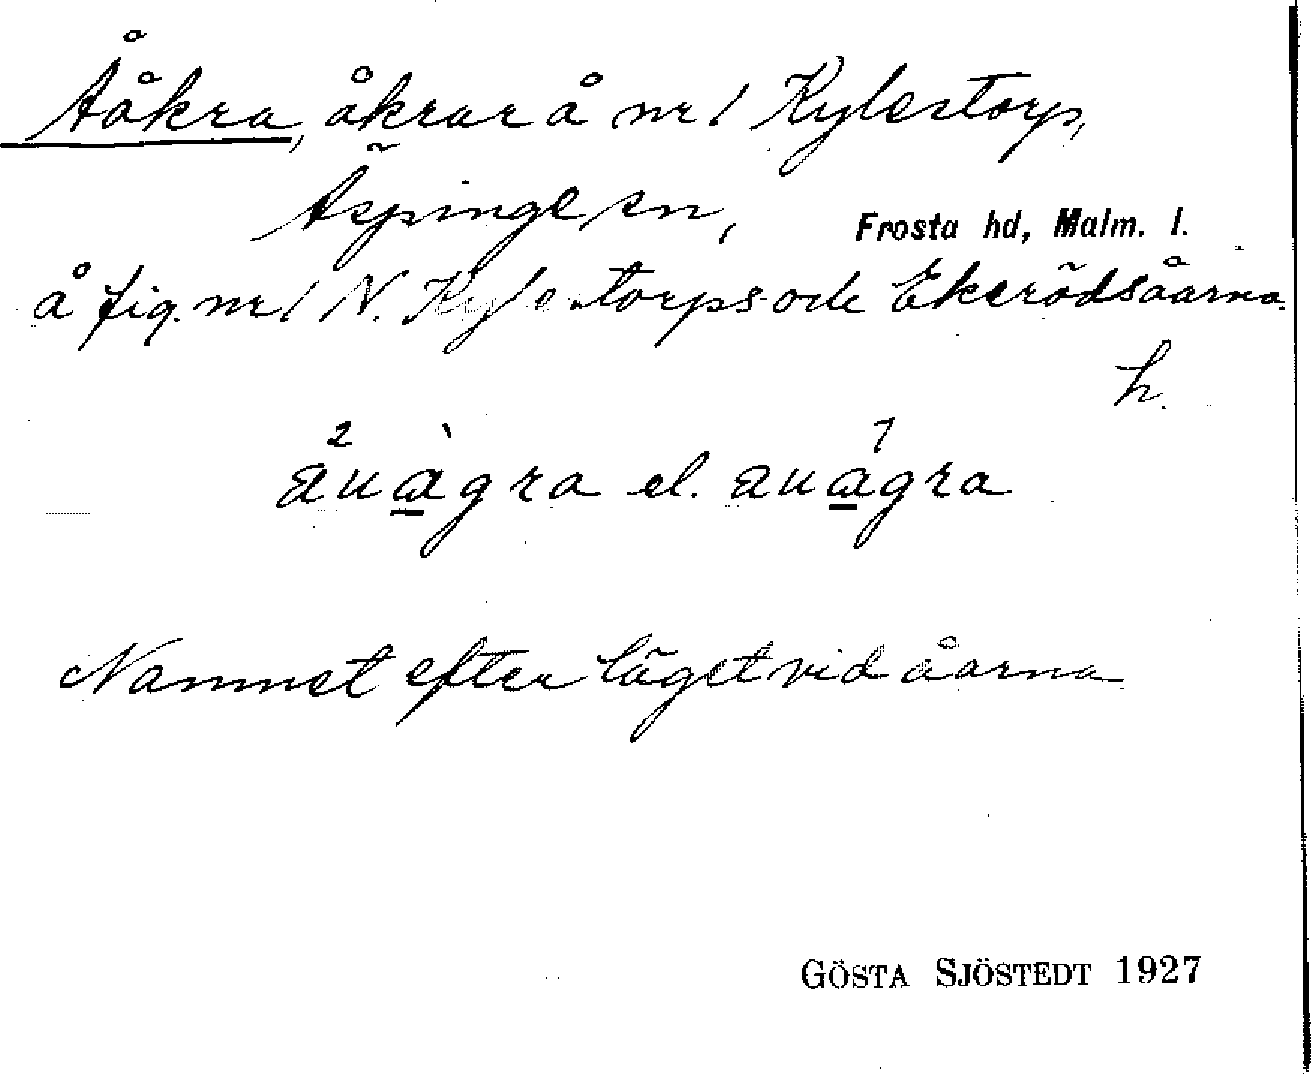 Ååkra, åkrar å nr 1 Kylestorp,
Äspinge sn, Frosta hd, Malm. l.
å fig. nr 1 N. Kylestorps- och Ekerödsåarna.
h.
åuàgra el. auagra
Namnet efter läget vid åarna
GÖSTA SJÖSTEDT 1927